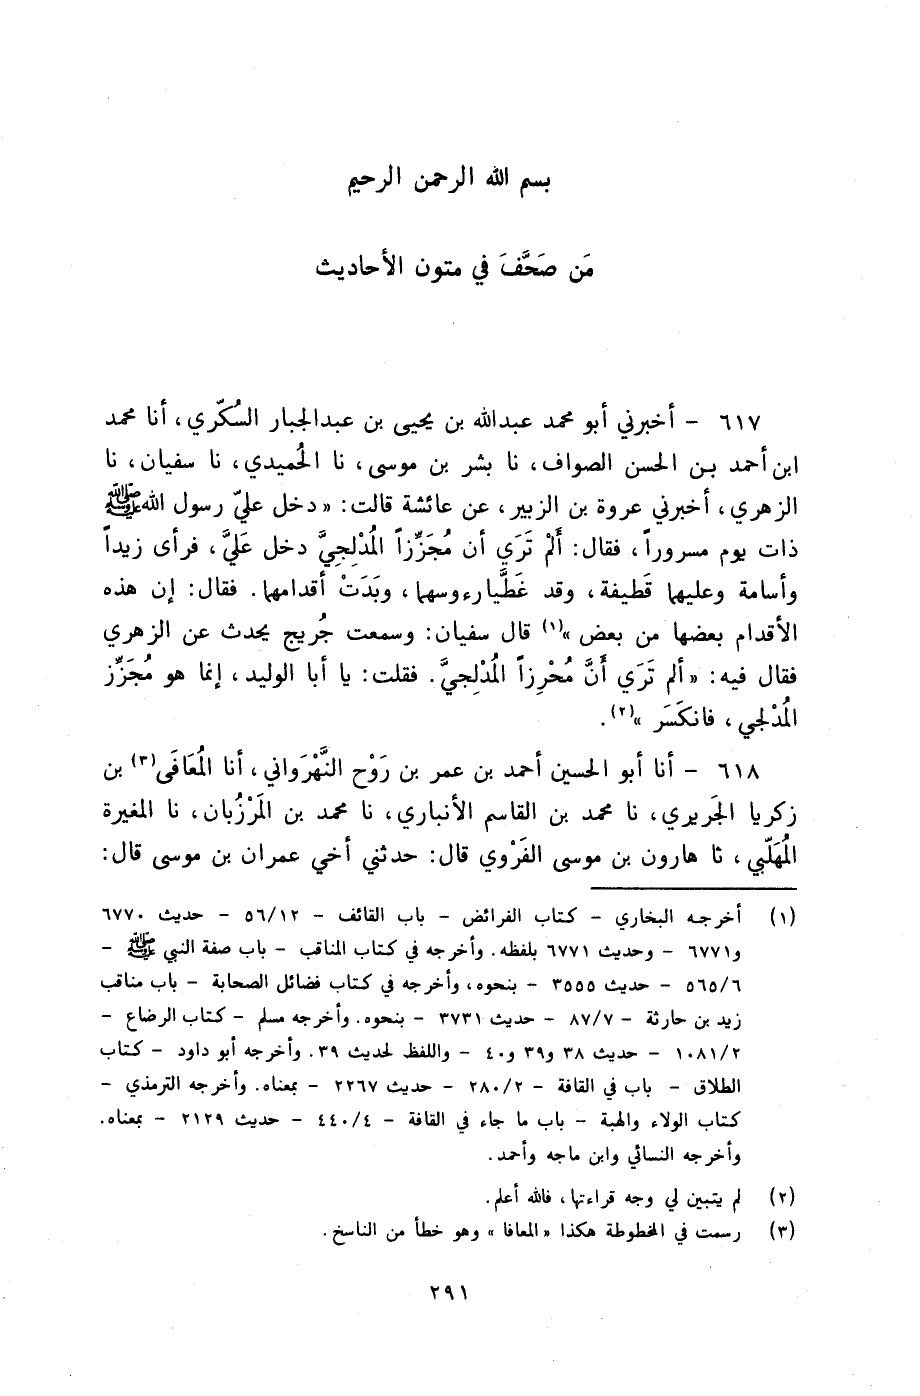 بسم الله الرحمن الرحيم
مَن صَحَّفَ في متون الأحاديث
٦١٧ - أخبرني أبو محمد عبدالله بن يحيى بن عبدالجبار السُكّري، أنا محمد
ابن أحمد بن الحسن الصواف، نا بشر بن موسى، نا الحُميدي، نا سفيان، نا
الزهري، أخبرني عروة بن الزبير، عن عائشة قالت: «دخل عليّ رسول الله ﷺ
ذات يوم مسروراً، فقال: أَلَمْ تَرَي أن مُجَزِّزاً المُدْلِجيَّ دخل عَليَّ، فرأى زيداً
وأسامة وعليهما قَطيفة، وقد غَطَّيا رءوسهما، وبَدَتْ أقدامهما. فقال: إن هذه
الأقدام بعضها من بعض»(١) قال سفيان: وسمعت جُريج يحدث عن الزهري
فقال فيه: «ألم تَرَي أَنَّ مُحْرِزاً المُدْلِجيَّ. فقلت: يا أبا الوليد، إنما هو مُجَزِّز
المُدْلجي، فانكَسَر»(٢).
٦١٨ - أنا أبو الحسين أحمد بن عمر بن رَوْح النَّهْرَواني، أنا المُعَافَى(٣) بن
زكريا الجَريري، نا محمد بن القاسم الأنباري، نا محمد بن المَرْزُبان، نا المغيرة
المُهَلّبي، ثا هارون بن موسى الفَرْوي قال: حدثني أخي عمران بن موسى قال:
(١) أخرجه البخاري - كتاب الفرائض - باب القائف - ٥٦/١٢ - حديث ٦٧٧٠
و٦٧٧١ - وحديث ٦٧٧١ بلفظه. وأخرجه في كتاب المناقب - باب صفة النبي ﷺ -
٥٦٥/٦ - حديث ٣٥٥٥ - بنحوه، وأخرجه في كتاب فضائل الصحابة - باب مناقب
زيد بن حارثة - ٨٧/٧ - حديث ٣٧٣١ - بنحوه. وأخرجه مسلم - كتاب الرضاع -
١٠٨١/٢ - حديث ٣٨ و٣٩ و٤٠ - واللفظ لحديث ٣٩. وأخرجه أبو داود - كتاب
الطلاق - باب في القافة - ٢٨٠/٢ - حديث ٢٢٦٧ - بمعناه. وأخرجه الترمذي -
كتاب الولاء والهبة - باب ما جاء في القافة - ٤٤٠/٤ - حديث ٢١٢٩ - بمعناه.
وأخرجه النسائي وابن ماجه وأحمد.
(٢) لم يتبين لي وجه قراءتها، فالله أعلم.
(٣) رسمت في المخطوطة هكذا «المعافا» وهو خطأ من الناسخ.
٢٩١